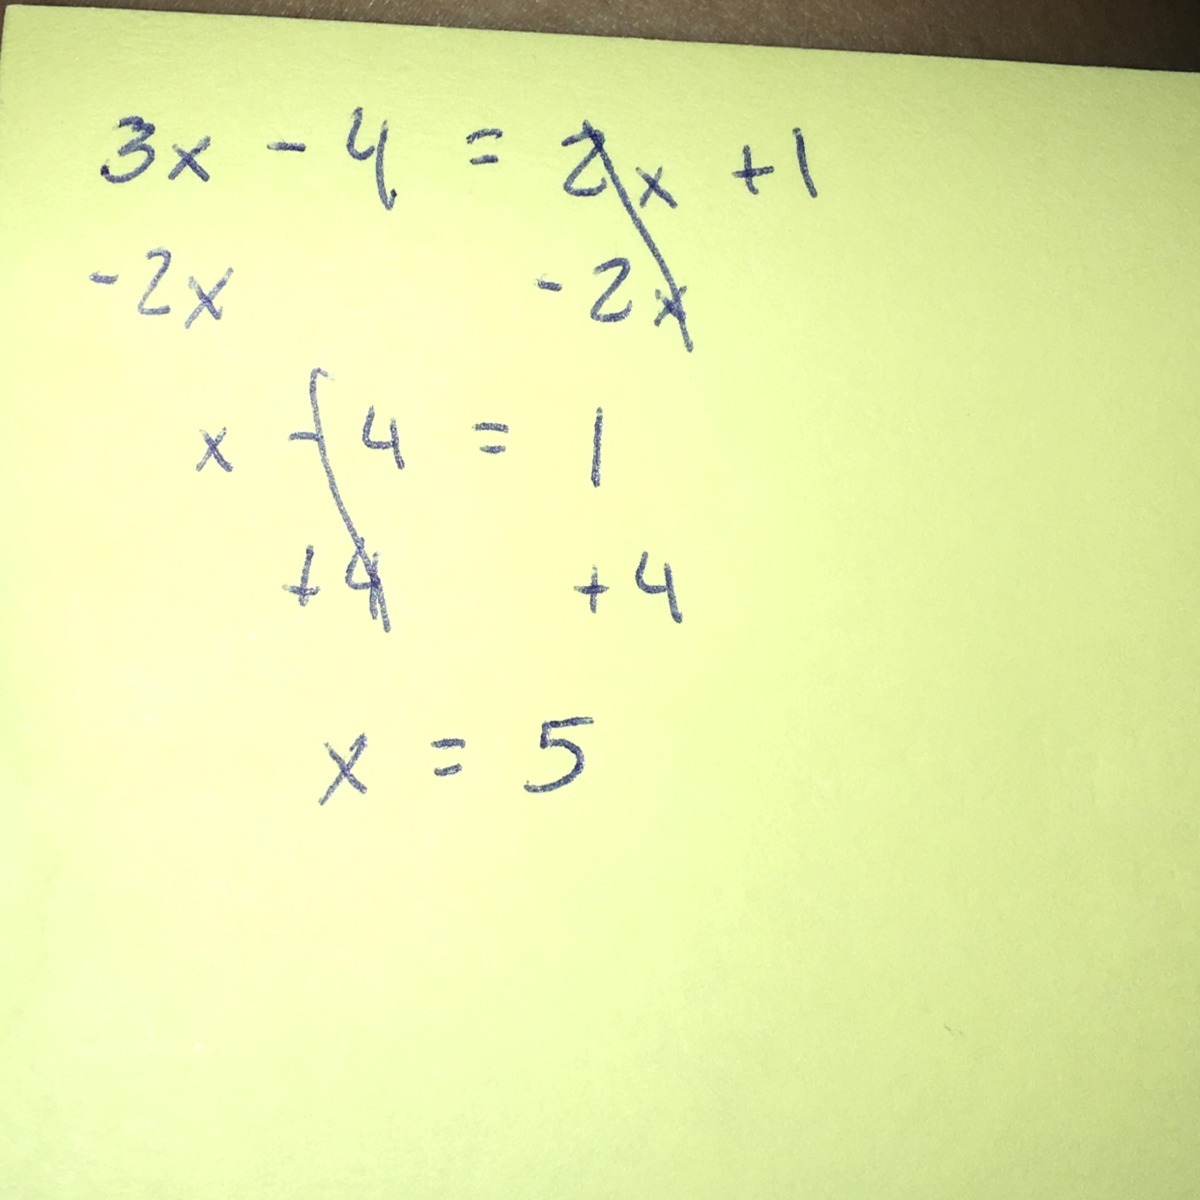 3x - 4 = 2x + 1
-2x -2x
x - 4 = 1
+4 +4
x = 5